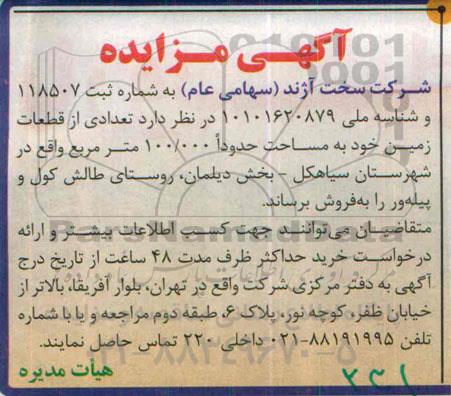 آگهی مزایده
شرکت سخت آژند (سهامی عام) به شماره ثبت ۱۱۸۵۰۷
و شناسه ملی ۱۰۱۰۱۶۲۰۸۷۹ در نظر دارد تعدادی از قطعات
زمین خود به مساحت حدوداً ۱۰۰/۰۰۰ متر مربع واقع در
شهرستان سیاهکل - بخش دیلمان، روستای طالش کول و
پیله‌ور را به‌فروش برساند.
متقاضیان می‌توانند جهت کسب اطلاعات بیشتر و ارائه
درخواست خرید حداکثر ظرف مدت ۴۸ ساعت از تاریخ درج
آگهی به دفتر مرکزی شرکت واقع در تهران، بلوار آفریقا، بالاتر از
خیابان ظفر، کوچه نور، پلاک ۶، طبقه دوم مراجعه و یا با شماره
تلفن ۸۸۱۹۱۹۹۵-۰۲۱ داخلی ۲۲۰ تماس حاصل نمایند.
هیأت مدیره
ParsNamadData
۰۲۱-۸۸۳۴۹۶۷۰-۵